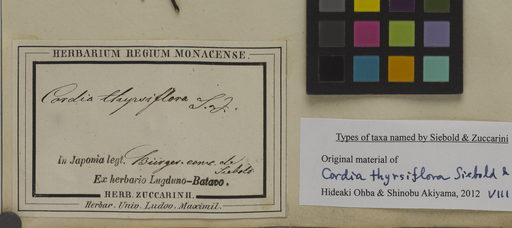 HERBARIUM REGIUM MONACENSE.
Cordia thyrsiflora S. Z.
in Japonia legt. Bürger. com. de
Siebold
Ex herbario Lugduno-Batavo.
HERB. ZUCCARINII.
Herbar. Univ. Ludov. Maximil.
Types of taxa named by Siebold & Zuccarini
Original material of
Cordia thyrsiflora Siebold &
Hideaki Ohba & Shinobu Akiyama, 2012 VIII